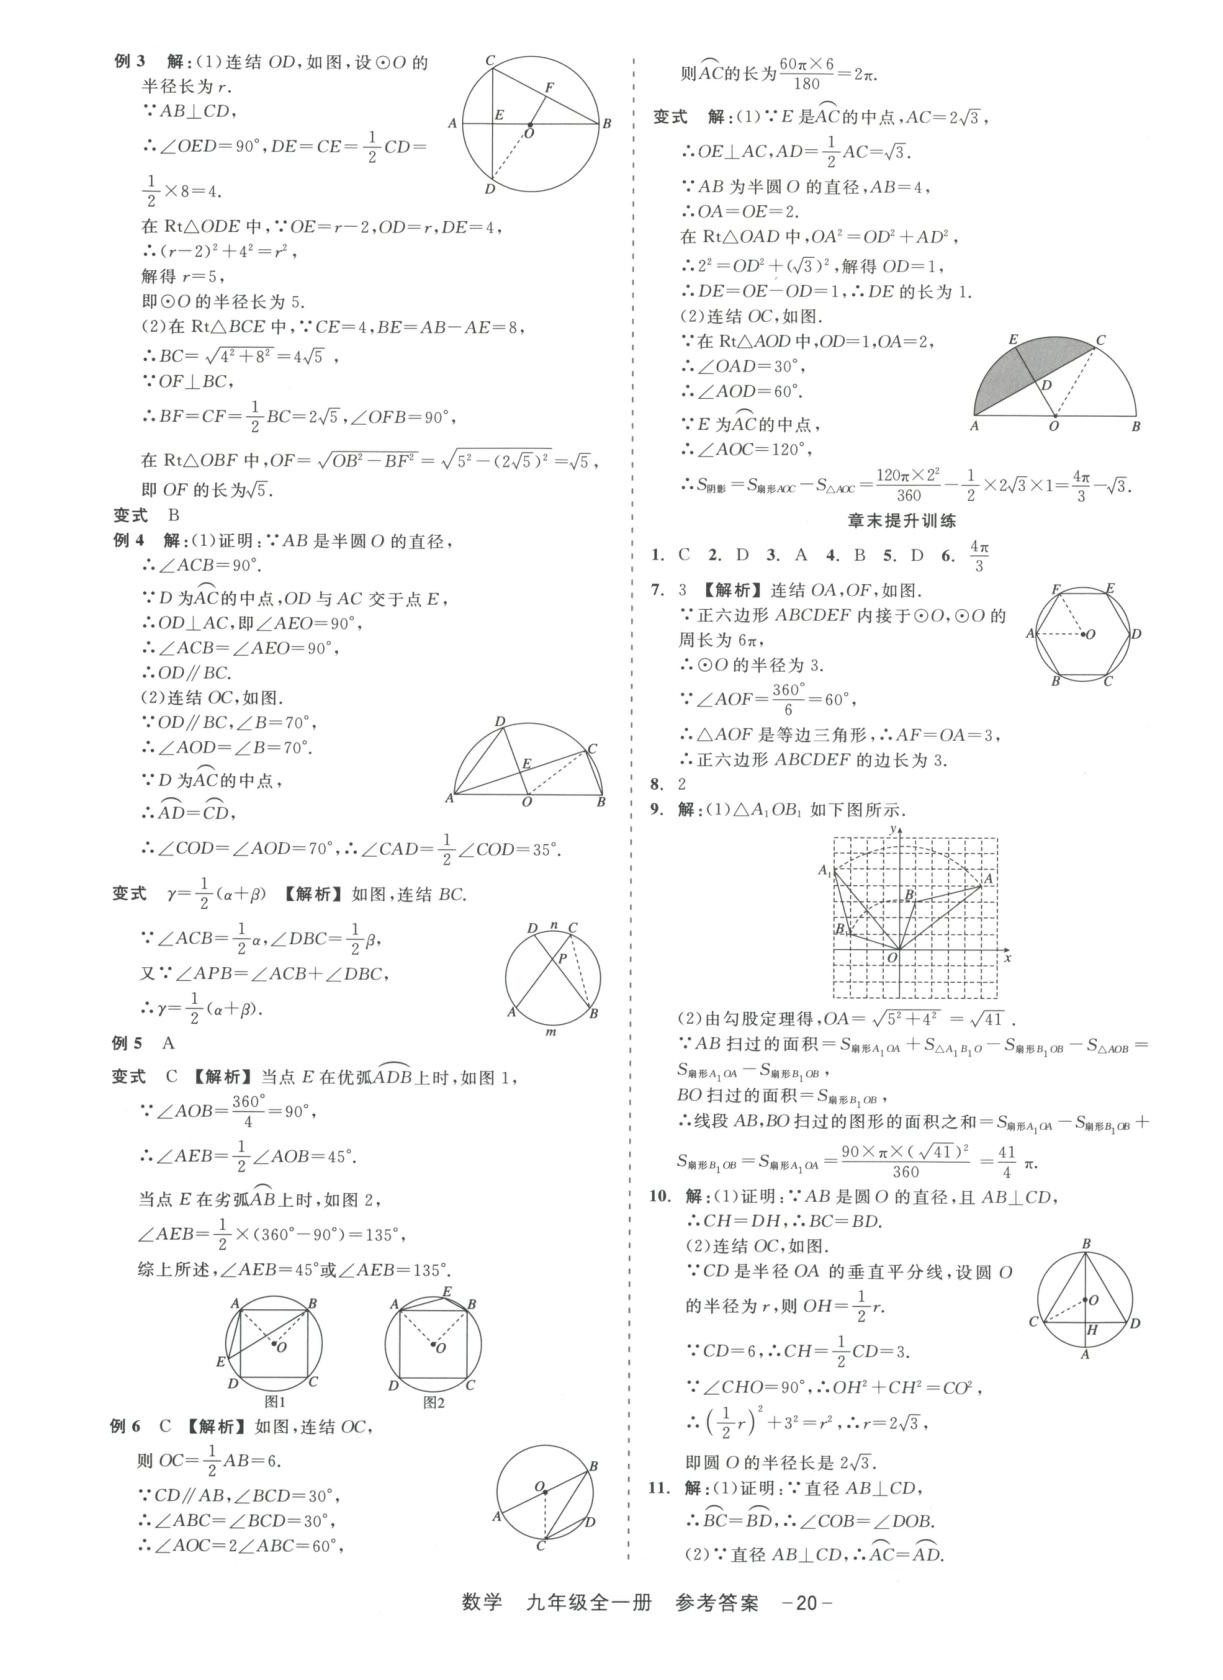 例3 解:(1)连结 OD,如图,设⊙O 的
半径长为 r.
∵AB⊥CD,
∴∠OED=90°,DE=CE=1/2CD=
1/2×8=4.
在 Rt△ODE 中,∵OE=r-2,OD=r,DE=4,
∴(r-2)²+4²=r²,
解得 r=5,
即⊙O 的半径长为 5.
(2)在 Rt△BCE 中,∵CE=4,BE=AB-AE=8,
∴BC=√(4²+8²)=4√5,
∵OF⊥BC,
∴BF=CF=1/2BC=2√5,∠OFB=90°,
在 Rt△OBF 中,OF=√(OB²-BF²)=√(5²-(2√5)²)=√5,
即 OF 的长为√5.
C
F
A
E
O
B
D
变式 B
例4 解:(1)证明:∵AB 是半圆 O 的直径,
∴∠ACB=90°.
∵D 为⌒AC的中点,OD 与 AC 交于点 E,
∴OD⊥AC,即∠AEO=90°,
∴∠ACB=∠AEO=90°,
∴OD∥BC.
(2)连结 OC,如图.
∵OD∥BC,∠B=70°,
∴∠AOD=∠B=70°.
∵D 为⌒AC的中点,
∴⌒AD=⌒CD,
∴∠COD=∠AOD=70°,∴∠CAD=1/2∠COD=35°.
D
C
E
A
O
B
变式 γ=1/2(α+β) 【解析】如图,连结 BC.
∵∠ACB=1/2α,∠DBC=1/2β,
又∵∠APB=∠ACB+∠DBC,
∴γ=1/2(α+β).
D n C
P
A
B
m
例5 A
变式 C 【解析】当点 E 在优弧⌒ADB上时,如图 1,
∵∠AOB=360°/4=90°,
∴∠AEB=1/2∠AOB=45°.
当点 E 在劣弧⌒AB上时,如图 2,
∠AEB=1/2×(360°-90°)=135°,
综上所述,∠AEB=45°或∠AEB=135°.
A
B
O
E
D
C
图1
E
A
B
O
D
C
图2
例6 C 【解析】如图,连结 OC,
则 OC=1/2AB=6.
∵CD∥AB,∠BCD=30°,
∴∠ABC=∠BCD=30°,
∴∠AOC=2∠ABC=60°,
B
O
A
D
C
则⌒AC的长为60π×6/180=2π.
变式 解:(1)∵E 是⌒AC的中点,AC=2√3,
∴OE⊥AC,AD=1/2AC=√3.
∵AB 为半圆 O 的直径,AB=4,
∴OA=OE=2.
在 Rt△OAD 中,OA²=OD²+AD²,
∴2²=OD²+(√3)²,解得 OD=1,
∴DE=OE-OD=1,∴DE 的长为 1.
(2)连结 OC,如图.
∵在 Rt△AOD 中,OD=1,OA=2,
∴∠OAD=30°,
∴∠AOD=60°.
∵E 为⌒AC的中点,
∴∠AOC=120°,
∴S阴影=S扇形AOC-S△AOC=120π×2²/360-1/2×2√3×1=4π/3-√3.
E
C
D
A
O
B
章末提升训练
1. C 2. D 3. A 4. B 5. D 6. 4π/3
7. 3 【解析】连结 OA,OF,如图.
∵正六边形 ABCDEF 内接于⊙O,⊙O 的
周长为 6π,
∴⊙O 的半径为 3.
∵∠AOF=360°/6=60°,
∴△AOF 是等边三角形,∴AF=OA=3,
∴正六边形 ABCDEF 的边长为 3.
F
E
A
O
D
B
C
8. 2
9. 解:(1)△A₁OB₁ 如下图所示.
y
A₁
A
B
B₁
O
x
(2)由勾股定理得,OA=√(5²+4²)=√41.
∵AB 扫过的面积=S扇形A₁OA+S△A₁B₁O-S扇形B₁OB-S△AOB=
S扇形A₁OA-S扇形B₁OB,
BO 扫过的面积=S扇形B₁OB,
∴线段 AB,BO 扫过的图形的面积之和=S扇形A₁OA-S扇形B₁OB+
S扇形B₁OB=S扇形A₁OA=90×π×(√41)²/360=41/4π.
10. 解:(1)证明:∵AB 是圆 O 的直径,且 AB⊥CD,
∴CH=DH,∴BC=BD.
(2)连结 OC,如图.
∵CD 是半径 OA 的垂直平分线,设圆 O
的半径为 r,则 OH=1/2r.
∵CD=6,∴CH=1/2CD=3.
∵∠CHO=90°,∴OH²+CH²=CO²,
∴(1/2r)²+3²=r²,∴r=2√3,
即圆 O 的半径长是 2√3.
B
O
C
H
D
A
11. 解:(1)证明:∵直径 AB⊥CD,
∴⌒BC=⌒BD,∴∠COB=∠DOB.
(2)∵直径 AB⊥CD,∴⌒AC=⌒AD.
数学 九年级全一册 参考答案 -20-